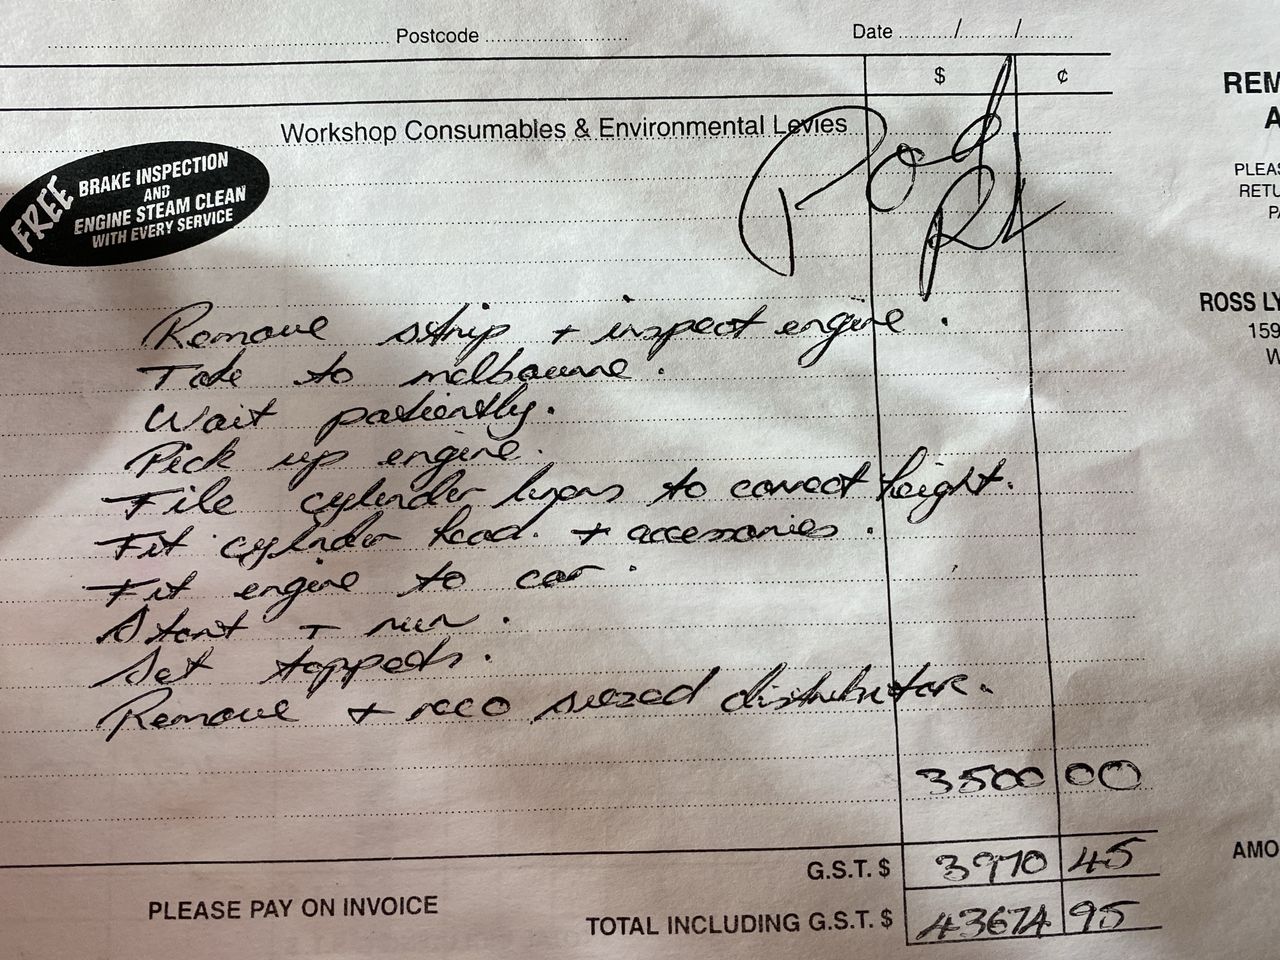 Postcode
Date / /
$ ¢
REM
A
Workshop Consumables & Environmental Levies
FREE BRAKE INSPECTION
AND
ENGINE STEAM CLEAN
WITH EVERY SERVICE
PLEAS
RETU
PA
Remove strip + inspect engine.
ROSS LY
159
W
Take to melbourne.
Wait patiently.
Pick up engine.
File cylinder to correct height.
Fit cylinder head. + accessories.
Fit engine to car.
Start + run.
Set tappets.
Remove + reco siezed distributor.
3500 00
G.S.T. $ 3970 45
AMO
PLEASE PAY ON INVOICE
TOTAL INCLUDING G.S.T. $ 43674 95